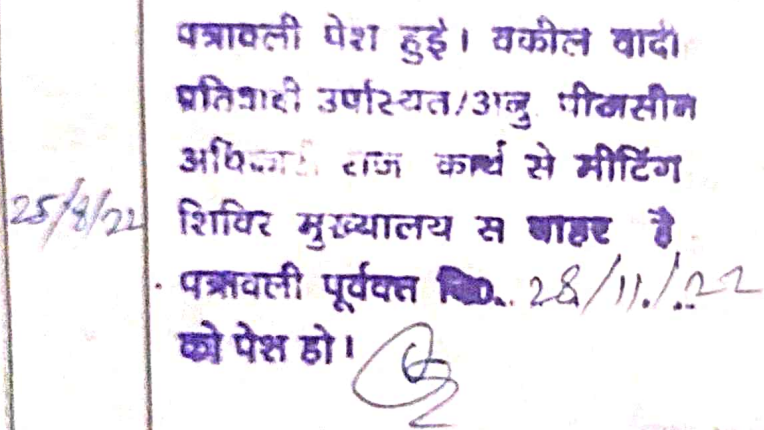 पत्रावली पेश हुई। वकील वादी
प्रतिवादी उपस्थित/अनु पीठासीन
राज कार्य से मीटिंग
25/8/22 शिविर मुख्यालय स बाहर है
पत्रावली पूर्ववत 28/11/22
को पेश हो।